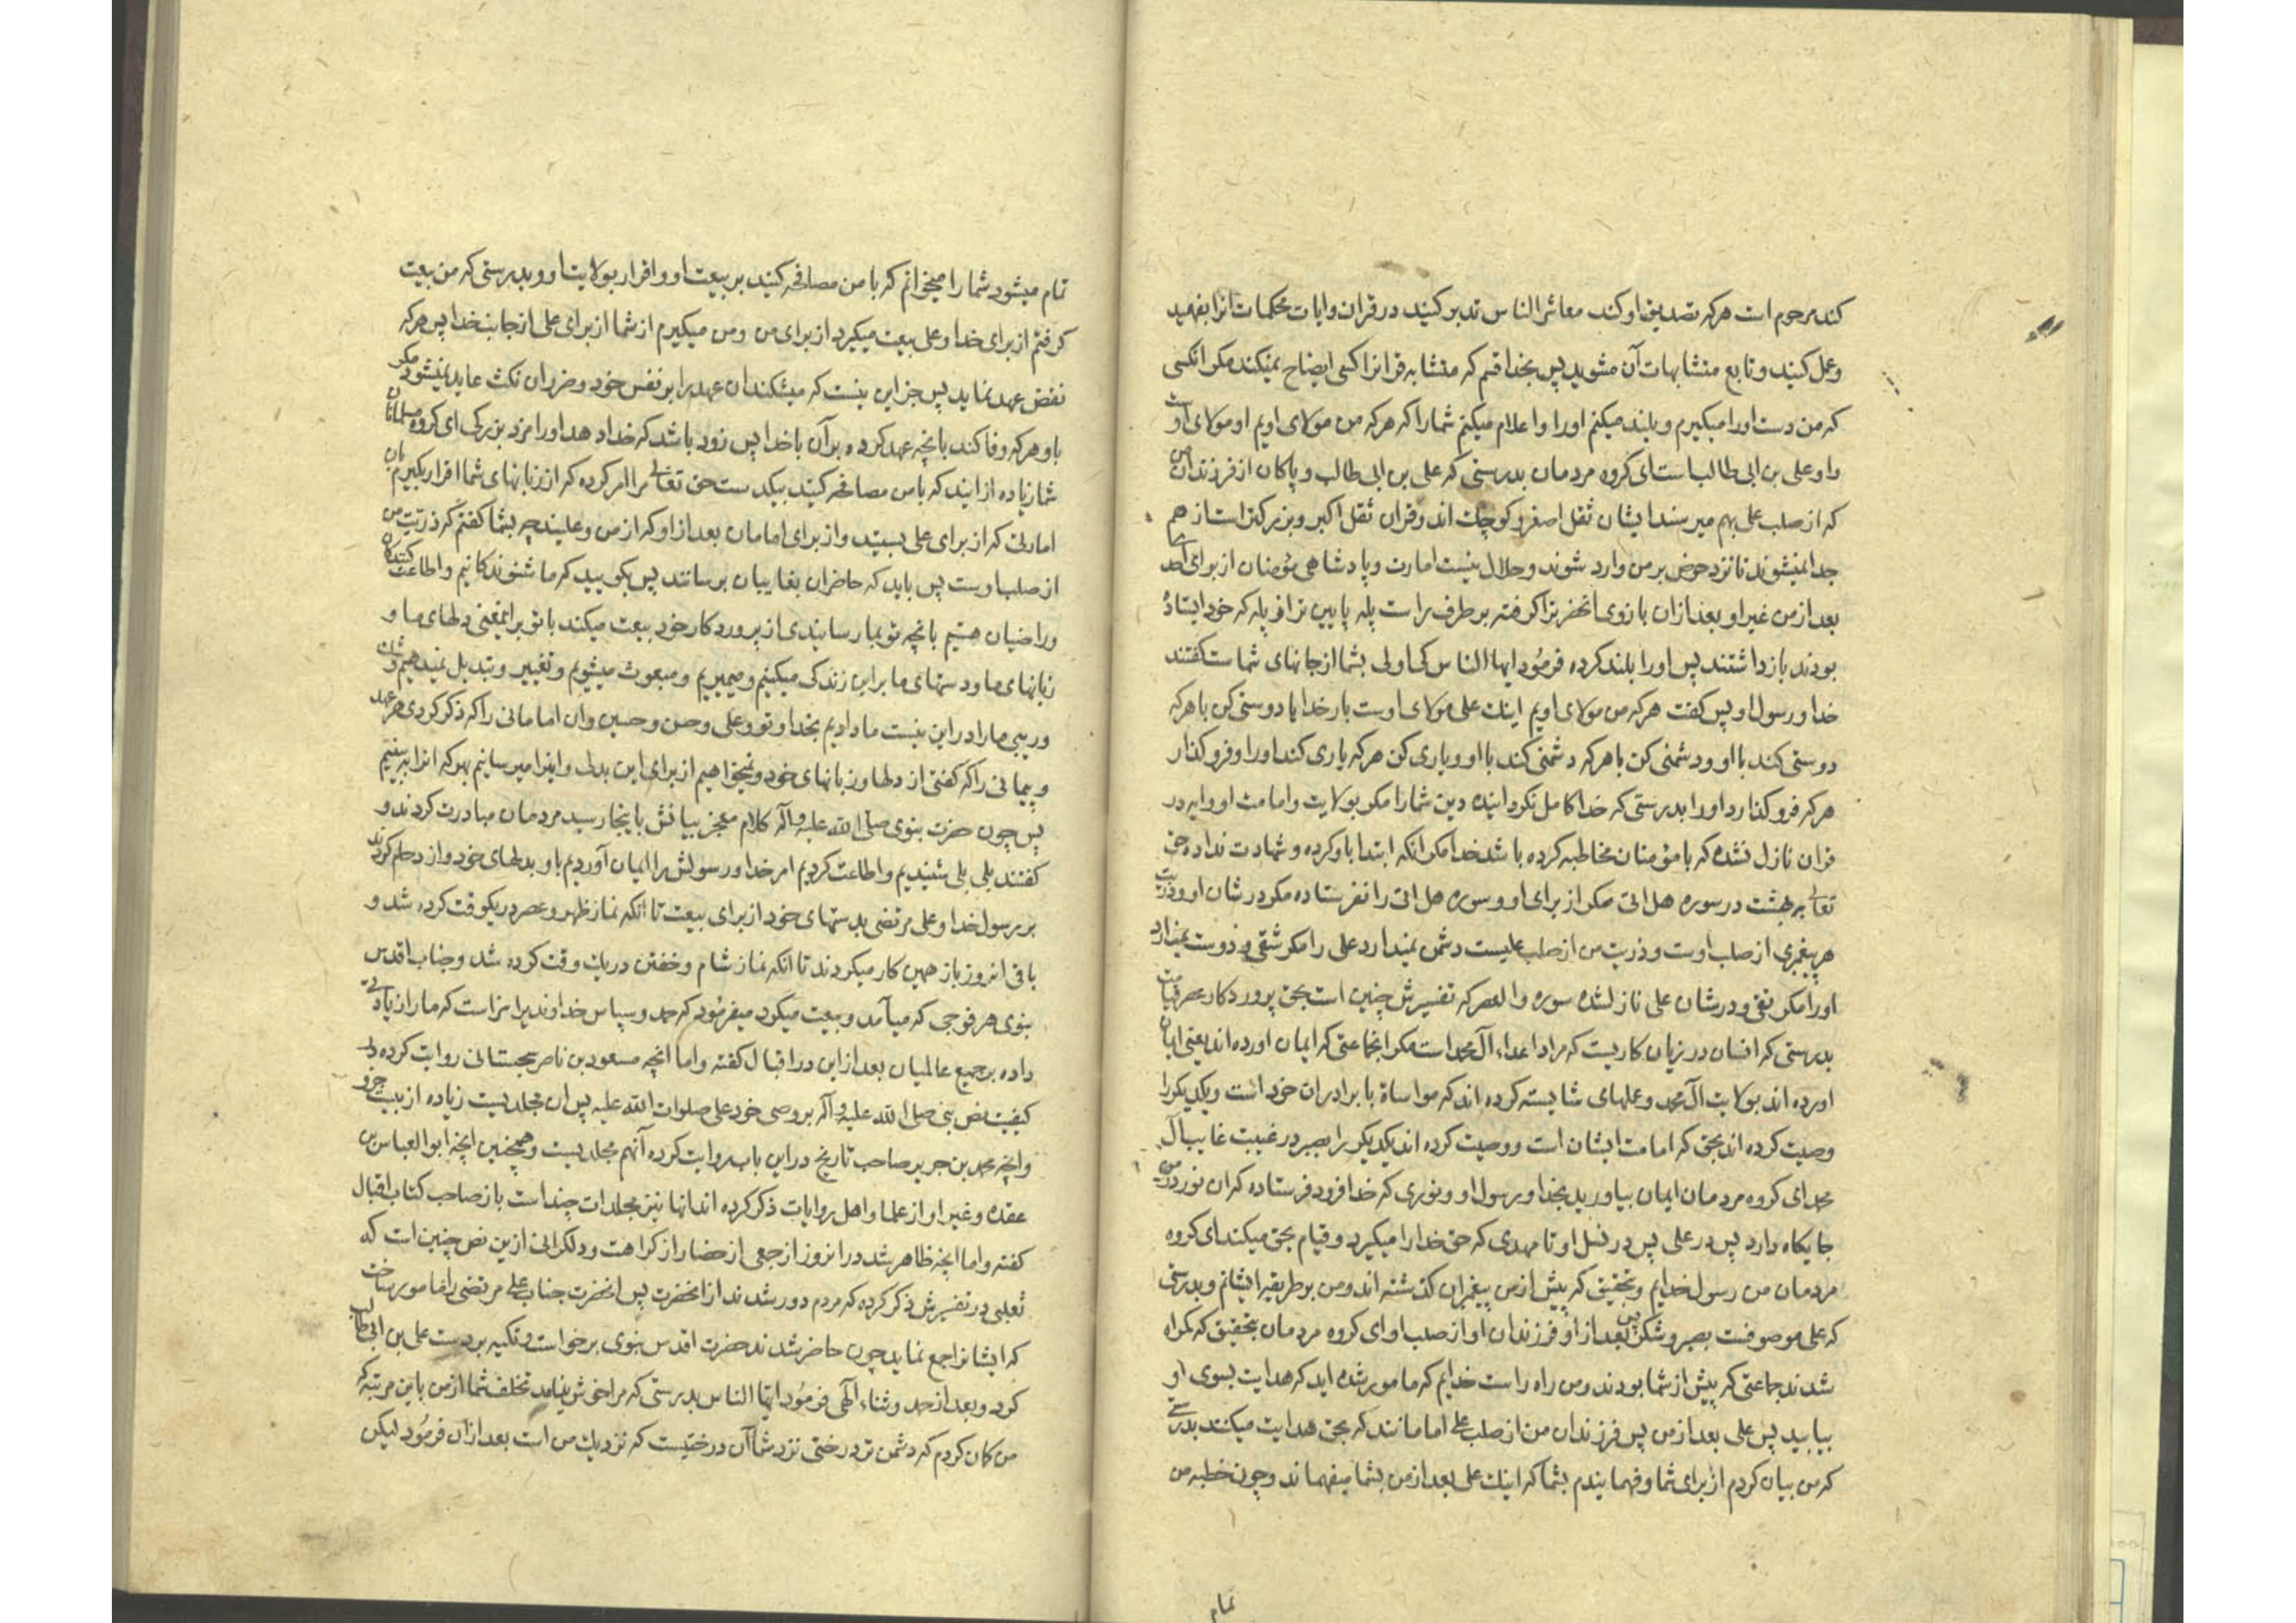 کند مرحوم است هرکه تصدیق او کند معاشر الناس تدبر کنید در قران و ایات محکمات انرا بفهمید
و عمل کنید و تابع متشابهات آن مشوید پس بخدا قسم که متشابه قرانرا کسی ایضاح نمیکند مکر انکسی
که من دست او را میکیرم و بلند میکنم او را و اعلام میکنم شما را که هرکه من مولای اویم او مولای اوست
و او علی بن ابی طالب است ای کروه مردمان بدرستی که علی بن ابی طالب و پاکان از فرزندان من
که از صلب علی بهم میرسند ایشان ثقل اصغر و کوچک اند و قران ثقل اکبر و بزرکتر است از هم
جدا نمیشوند تا نزد حوض بر من وارد شوند و حلال نیست امارت و پادشاهی مؤمنان از برای احد
بعد از من غیر او بعد ازان بازوی انحضرترا کرفته بر طرف راست پله پایین تر از پله که خود ایستاده
بودند بازداشتند پس او را بلند کرده فرمود ایها الناس کی اولی بشما از جانهای شماست کفتند
خدا و رسول او پس کفت هرکه من مولای اویم اینک علی مولای اوست بار خدایا دوستی کن با هرکه
دوستی کند با او و دشمنی کن با هرکه دشمنی کند با او و یاری کن هرکه یاری کند او را و فرو کذار
هرکه فرو کذارد او را بدرستی که خدا کامل نکردانیده دین شما را مکر بولایت و امامت او و ایه در
قران نازل نشده که با مؤمنان مخاطبه کرده باشد خدا مکر انکه ابتدا باو کرده و شهادت نداده حق
تعالی به بهشت در سوره هل اتی مکر از برای او و سوره هل اتی را نفرستاده مکر در شان او و ذریت
هر پیغمبری از صلب اوست و ذریت من از صلب علیست دشمن نمیدارد علی را مکر شقی و دوست نمیدارد
او را مکر تقی و در شان علی نازل شده سوره والعصر که تفسیرش چنین است بحق پروردکار عصر قیامت
بدرستی که انسان در زیان کاریست که مراد اعداء آل محمد است مکر انجماعتی که ایمان اورده اند یعنی ایمان
اورده اند بولایت آل محمد و عملهای شایسته کرده اند که مواساة با برادران خود است و یکدیکر را
وصیت کرده اند بحق که امامت ایشان است و وصیت کرده اند یکدیکر را بصبر در غیبت غایب آل
محمد ای کروه مردمان ایمان بیاورید بخدا و رسول او و نوری که خدا فرود فرستاده که ان نور در من
جایکاه دارد پس در علی پس در نسل او تا مهدی که حق خدا را میکیرد و قیام بحق میکند ای کروه
مردمان من رسول خدایم و بتحقیق که پیش از من پیغمبران کذشته اند و من بر طریقه ایشانم و بدرستی
که علی موصوفست بصبر و شکر پس بعد از او فرزندان او از صلب او ای کروه مردمان بتحقیق که کمراه
شدند جماعتی که پیش از شما بودند و من راه راست خدایم که مامور شده اید که هدایت بسوی او
بیابید پس علی بعد از من پس فرزندان من از صلب علی امامانند که بحق هدایت میکنند بدرستی
که من بیان کردم از برای شما و فهمانیدم بشما که اینک علی بعد از من بشما میفهماند و چون خطبه من
تمام
تمام میشود شما را میخوانم که با من مصافحه کنید بر بیعت او و اقرار بولایت او و بدرستی که من بیعت
کرفتم از برای خدا و علی بیعت میکیرد از برای من و من میکیرم از شما از برای علی از جانب خدا پس هرکه
نقض عهد نماید پس جز این نیست که میشکند ان عهد را بر نفس خود و ضرر ان نکث عاید نمیشود مکر
باو و هرکه وفا کند بانچه عهد کرده بر آن با خدا پس زود باشد که خدا دهد او را مزد بزرکی ای کروه مسلمانان
شما زیاده ازانید که با من مصافحه کنید بیکدست حق تعالی مرا امر کرده که از زبانهای شما اقرار بکیرم بان
امارتی که از برای علی بستید و از برای امامان بعد از او که از من و علیند چه بشما کفتم که ذریت من
از صلب اوست پس باید که حاضران بغایبان برسانند پس بکویید که ما شنوندکانیم و اطاعت کنندکان
و راضیان هستیم بانچه تو بما رسانیدی از پروردکار خود بیعت میکند با تو بر اینمعنی دلهای ما و
زبانهای ما و دستهای ما بر این زندکی میکنیم و میمیریم و مبعوث میشویم و تغییر و تبدیل نمیدهیم و شک
و ریبی ما را در این نیست ما دادیم بخدا و تو و علی و حسن و حسین و ان امامانی را که ذکر کردی هر عهد
و پیمانی را که کفتی از دلها و زبانهای خود و نمیخواهیم از برای این بدل و اینرا میرسانیم بهرکه انرا ببینیم
پس چون حضرت نبوی صلی الله علیه و آله کلام معجز بیانش باینجا رسید مردمان مبادرت کردند و
کفتند بلی بلی شنیدیم و اطاعت کردیم امر خدا و رسولش را ایمان آوردیم باو بدلهای خود و ازدحام کردند
بر رسول خدا و علی مرتضی بدستهای خود از برای بیعت تا انکه نماز ظهر و عصر در یکوقت کرده شد و
باقی انروز باز همین کار میکردند تا انکه نماز شام و خفتن در یک وقت کرده شد و جناب اقدس
نبوی هر فوجی که میآمد و بیعت میکرد میفرمود که حمد و سپاس خداوندیرا سزاست که ما را زیادتی
داده بر جمیع عالمیان بعد از این در اقبال کفته و اما انچه مسعود بن ناصر سجستانی روایت کرده در
کیفیت نص نبی صلی الله علیه و آله بر وصی خود علی صلوات الله علیه پس ان مجلدیست زیاده از بیست جزو
و انچه محمد بن جریر صاحب تاریخ در این باب روایت کرده آنهم مجلدیست و همچنین انچه ابو العباس بن
عقده و غیر او از علما و اهل روایات ذکر کرده اند انها نیز مجلدات چند است باز صاحب کتاب اقبال
کفته و اما انچه ظاهر شد در انروز از جمعی از حضار از کراهت و دلکرانی ازین نص چنین است که
ثعلبی در تفسیرش ذکر کرده که مردم دور شدند از انحضرت پس انحضرت جناب علی مرتضی را مامور ساخت
که ایشانرا جمع نماید چون حاضر شدند حضرت اقدس نبوی برخواست و تکیه بر دست علی بن ابی طالب
کرد و بعد از حمد و ثناء الهی فرمود ایها الناس بدرستی که مرا خوش نیامد تخلف شما از من باین مرتبه که
من کمان کردم که دشمن ترد درختی نزد شما آن درختیست که نزدیک من است بعد ازان فرمود لیکن